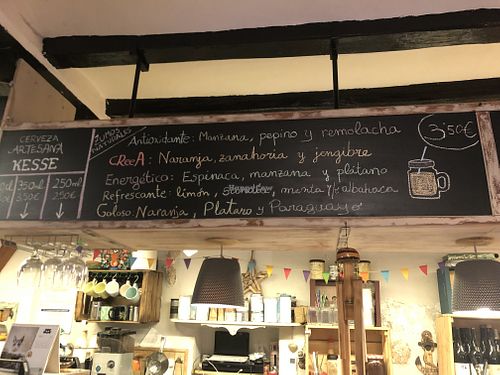 CERVEZA
ARTESANA
KESSE
350ml 250ml
3.50€ 2.50€
ZUMOS
NATURALES
3'50€
Antioxidante: Manzana, pepino y remolacha
CRECA: Naranja, zanahoria y jengibre
Energético: Espinaca, manzana y plátano
Refrescante: limón, menta y/o albahaca
Goloso: Naranja, Platano y Paraguayo